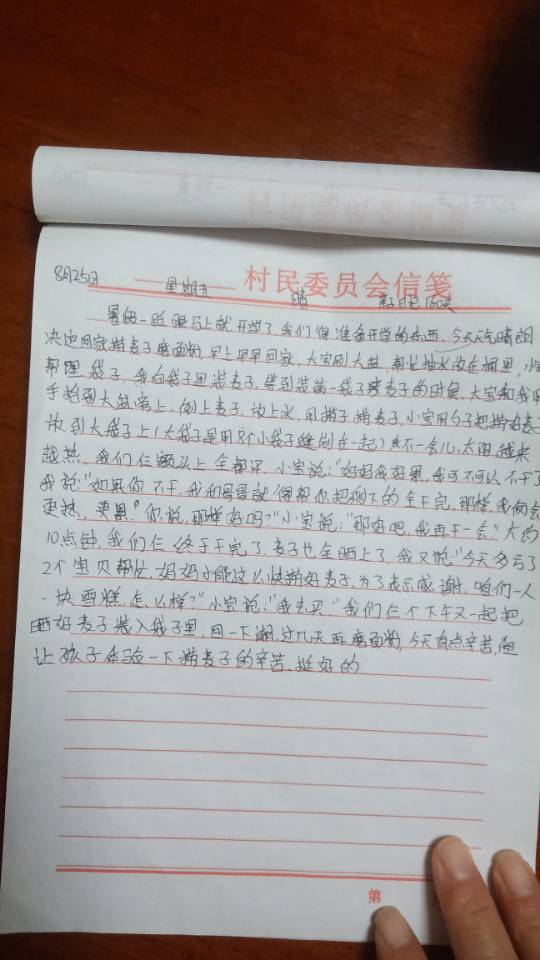 村民委员会信笺
8月25日 星期五 晴
暑假一眨眼马上就开学了,我们俩准备开学的东西,今天天气晴朗
决定回家捞麦子磨面粉,早上早早回家,大宝刷大盆,帮忙抽水放在桶里,小宝
帮理袋子,我向袋子里装麦子,等到装满一袋子麦子的时候,大宝和我用
手抬到大盆旁上,倒上麦子,放上水,用捞子捞麦子,小宝用勺子把捞好麦子
放到大袋子上(大袋子是用8个小袋子缝制在一起)不一会儿,太阳越来
越热,我们仨额头上全都汗,小宝说:"妈妈我好累,我可不可以不干了
我说"如果你不干,我和哥哥就得帮你把剩下的全干完,那样,我俩会
更热,更累。你说,那样好吗?"小宝说:"那好吧,我再干一会"大约
10点钟,我们仨终于干完了,麦子也全晒上了,我又说:"今天多亏了
2个宝贝帮忙,妈妈才能这么快捞好麦子,为了表示感谢,咱们一人
一块雪糕,怎么样?"小宝说:"我去买"我们仨个下午又一起把
晒好麦子装入袋子里,回一下潮,过几天再磨面粉,今天有点辛苦,但
让孩子体验一下捞麦子的辛苦,挺好的
第